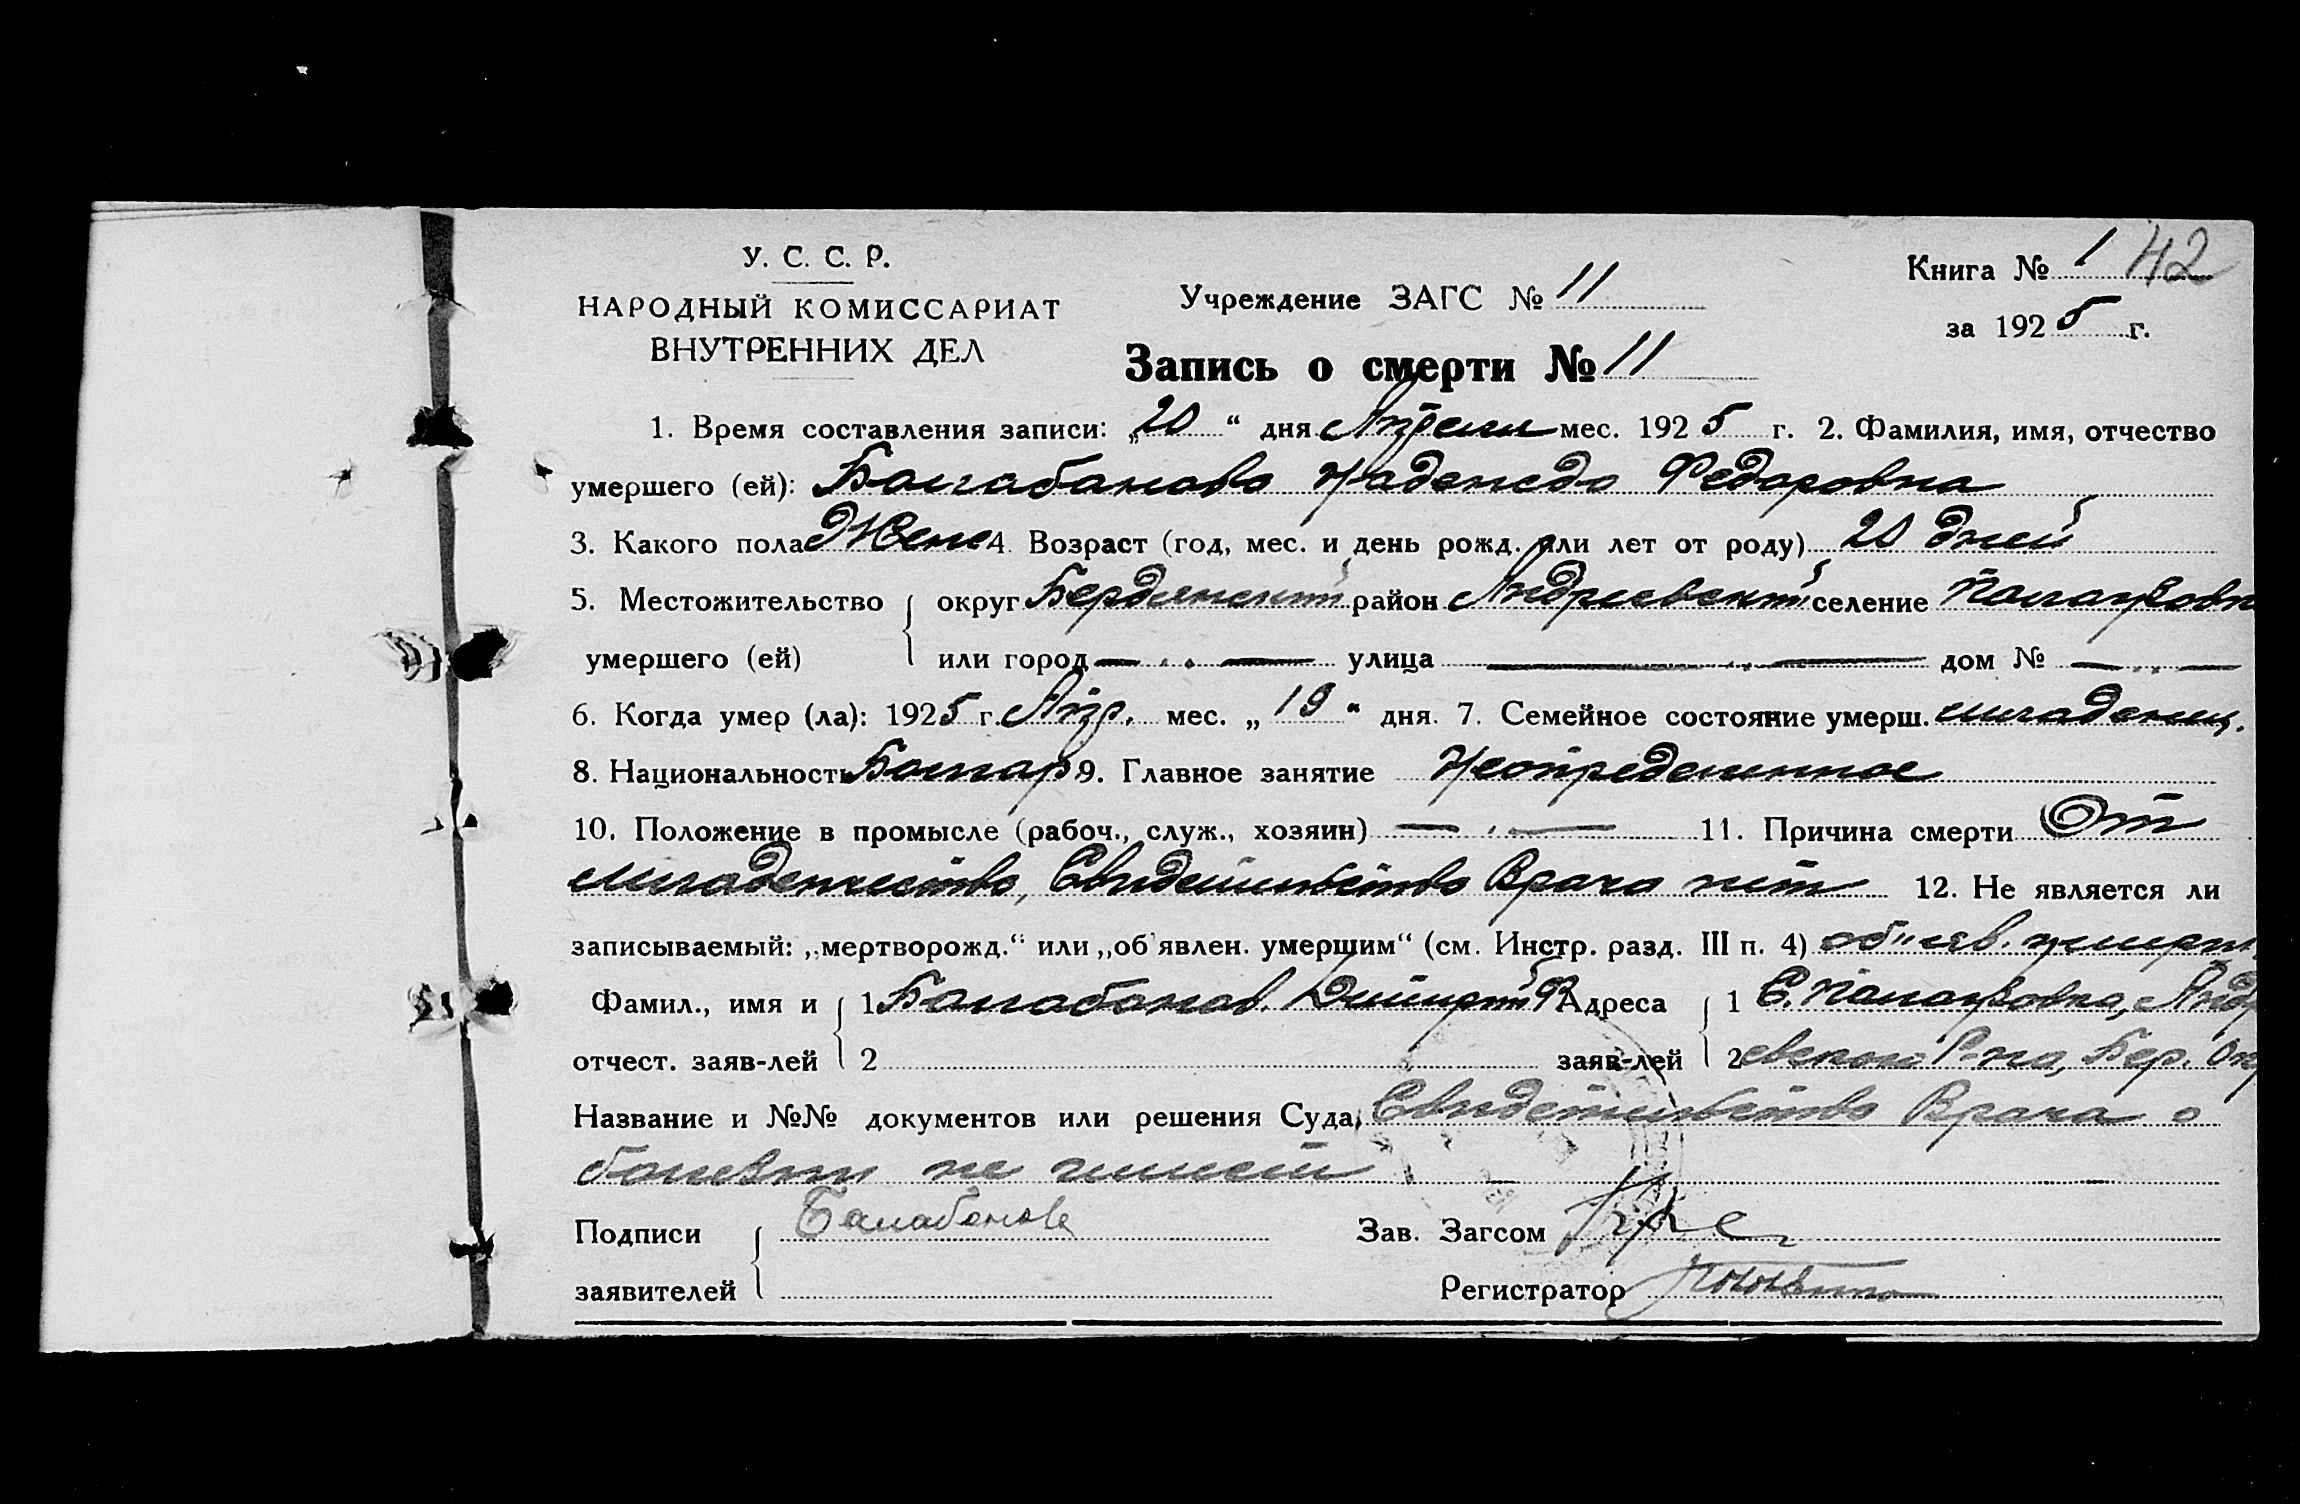 У. С. С. Р.
НАРОДНЫЙ КОМИССАРИАТ
ВНУТРЕННИХ ДЕЛ
Учреждение ЗАГС № 11
Книга № 1 42
за 1925 г.
Запись о смерти № 11
1. Время составления записи: „20“ дня Апреля мес. 1925 г. 2. Фамилия, имя, отчество
умершего (ей): Балабанова Надежда Федоровна
3. Какого пола Женс 4. Возраст (год, мес. и день рожд. или лет от роду) 20 дней
5. Местожительство округ Бердянский район Андреевский селение Палаузовк
умершего (ей) или город — . . — улица — . . — дом № — . . —
6. Когда умер (ла): 1925 г. Апр. мес. „19“ дня. 7. Семейное состояние умерш. младенец.
8. Национальность Болгар 9. Главное занятие Неопределенное
10. Положение в промысле (рабоч., служ., хозяин) — . — 11. Причина смерти От
младенчества, Свидетельства Врача нет 12. Не является ли
записываемый: „мертворожд.“ или „об'явлен. умершим“ (см. Инстр. разд. III п. 4) об"яв. умерш.
Фамил., имя и 1 Балабанов Дмитрий Ф Адреса 1 С. Палаузовка, Андре
отчест. заяв-лей 2 заяв-лей 2 евского Р-на, Бер. Окр
Название и №№ документов или решения Суда, Свидетельства Врача о
болезни не имеет
Подписи Балабанов Зав. Загсом
заявителей Регистратор